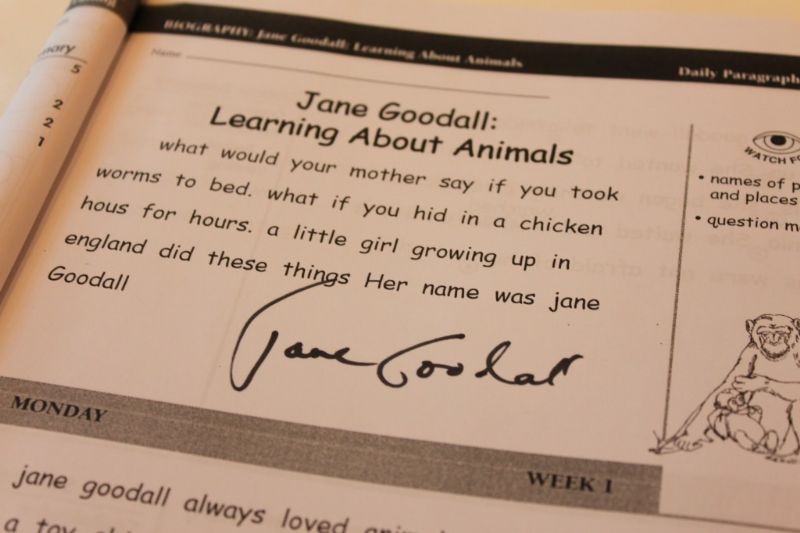 BIOGRAPHY: Jane Goodall: Learning About Animals
Daily Paragraph
Name
5
2
2
1
Jane Goodall:
Learning About Animals
what would your mother say if you took
worms to bed. what if you hid in a chicken
hous for hours. a little girl growing up in
england did these things Her name was jane
Goodall
WATCH FO
• names of p
and places
• question m
Jane Goodall
MONDAY
WEEK 1
jane goodall always loved
a toy